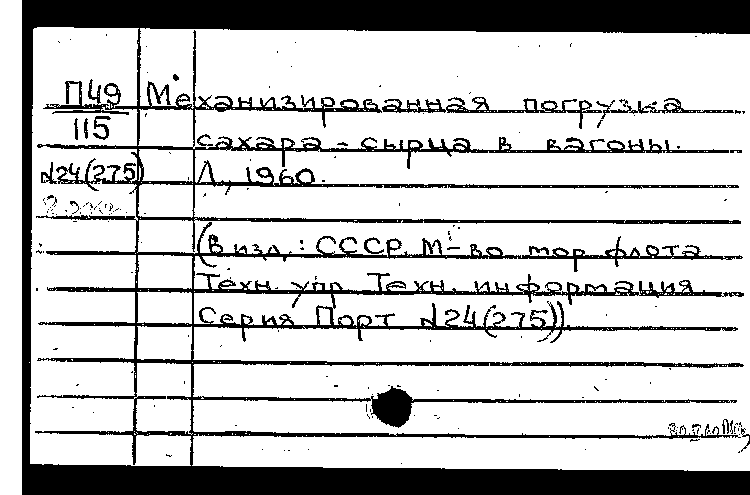 П49 Механизированная погрузка
115 сахара-сырца в вагоны.
№24(275) Л., 1960.
(В изд.: СССР. М-во мор. флота
Техн. упр. Техн. информация.
Серия Порт №24(275)).